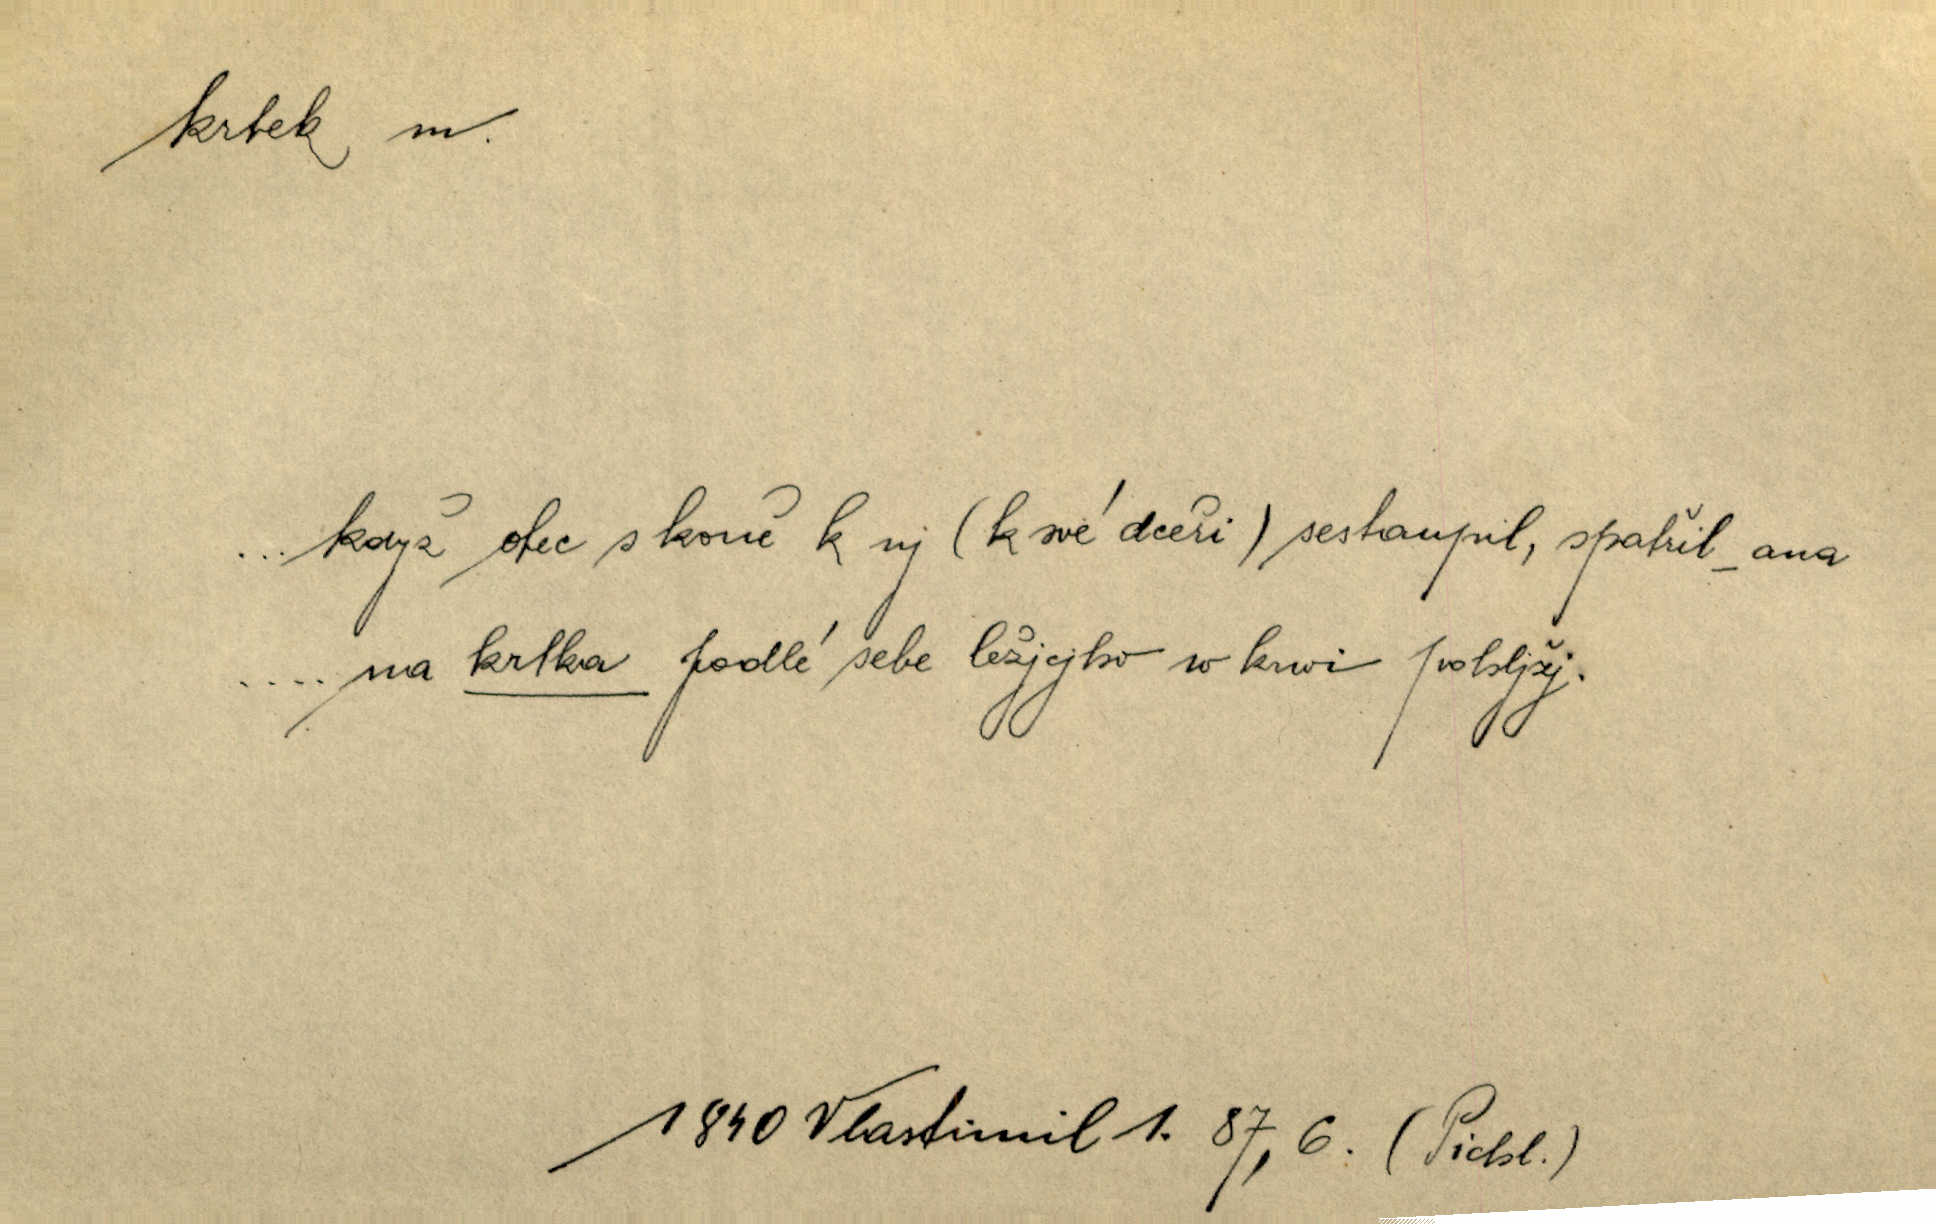 krtek m.
... když otec s koně k nj (k své dceři) sestaupil, spatřil_ana
.... na krtka podlé sebe ležjcjho w krwi pohljžj.
1840 Vlastimil 1. 87, 6. (Pichl.)